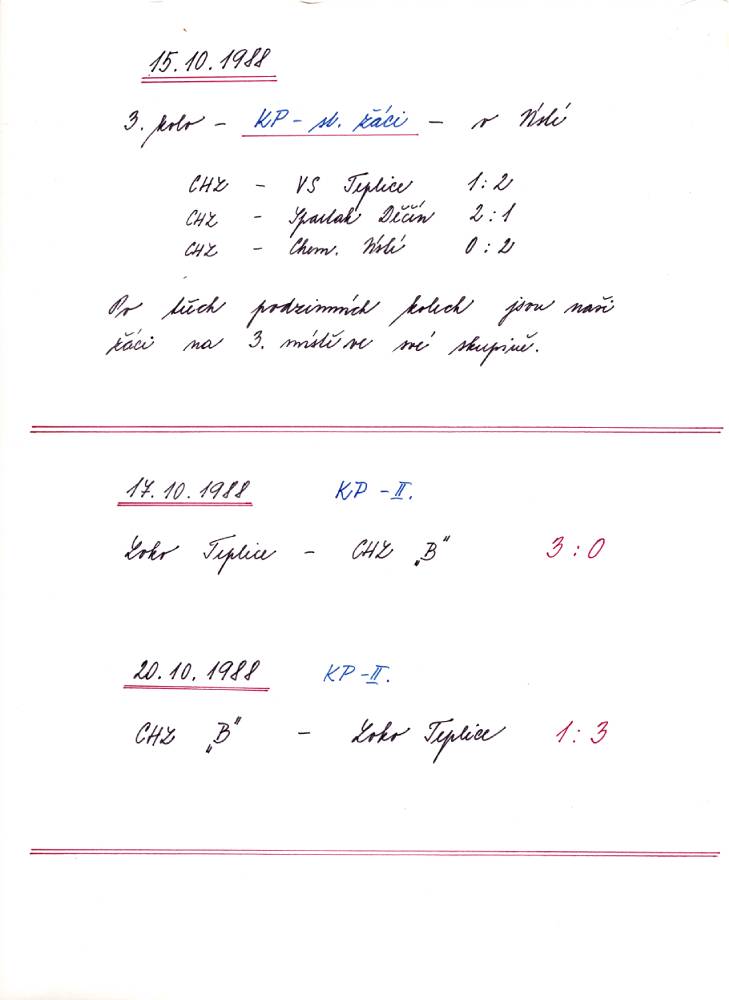 15.10.1988
3. kolo - KP - st. žáci - v Ústí
CHZ - VS Teplice 1:2
CHZ - Spartak Děčín 2:1
CHZ - Chem. Ústí 0:2
Po těch podzimních kolech jsou naši
žáci na 3. místě ve své skupině.
17.10.1988 KP - II.
Loko Teplice - CHZ „B" 3:0
20.10.1988 KP - II.
CHZ „B" - Loko Teplice 1:3